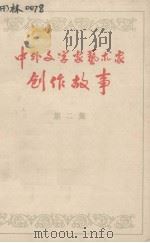 中外文学家艺术家
创作故事
第二集